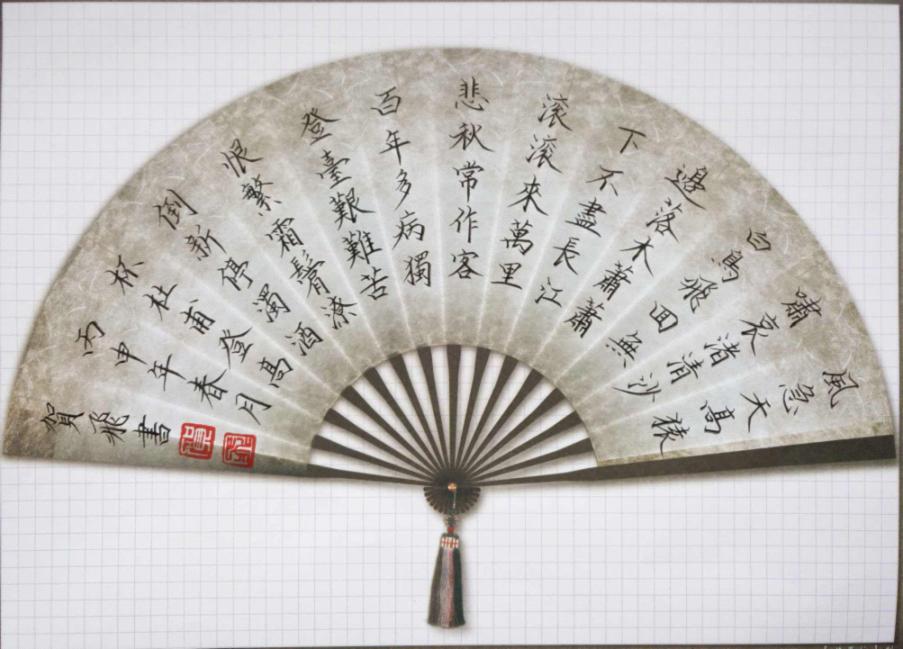 風急天高猿
嘯哀渚清沙
白鳥飛回無
邊落木蕭蕭
下不盡長江
滚滚來萬里
悲秋常作客
百年多病獨
登臺艱難苦
恨繁霜鬢潦
倒新停濁酒
杯杜甫登高
丙申年春月
賀飛書